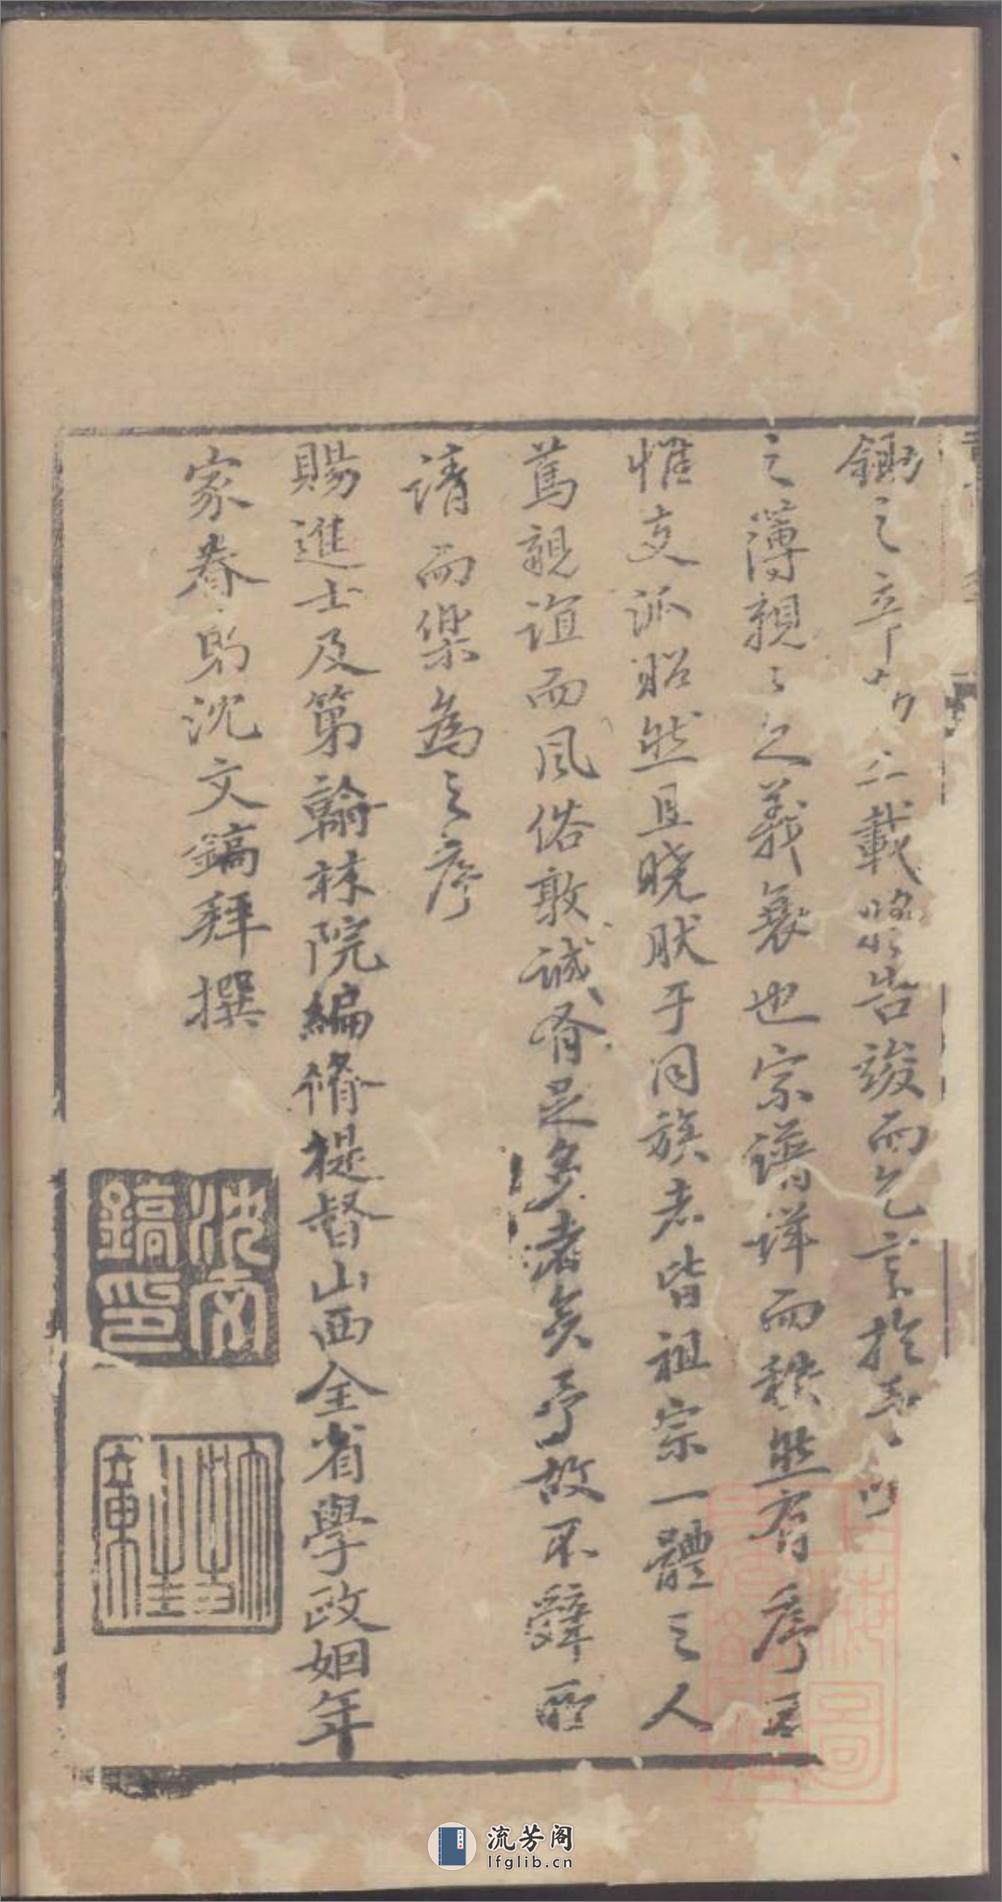 之 三載將告竣而乞言於
之薄親〻之義衰也宗譜詳而秩然有序
惟支派昭然且曉肰于同族者皆祖宗一體之人
篤親誼而風俗敦誠有足多者矣予故不辭所
請而樂為之序
賜進士及第翰林院編脩提督山西全省學政姻年
家眷弟沈文鎬拜撰
沈文鎬印
流芳阁
lfglib.cn